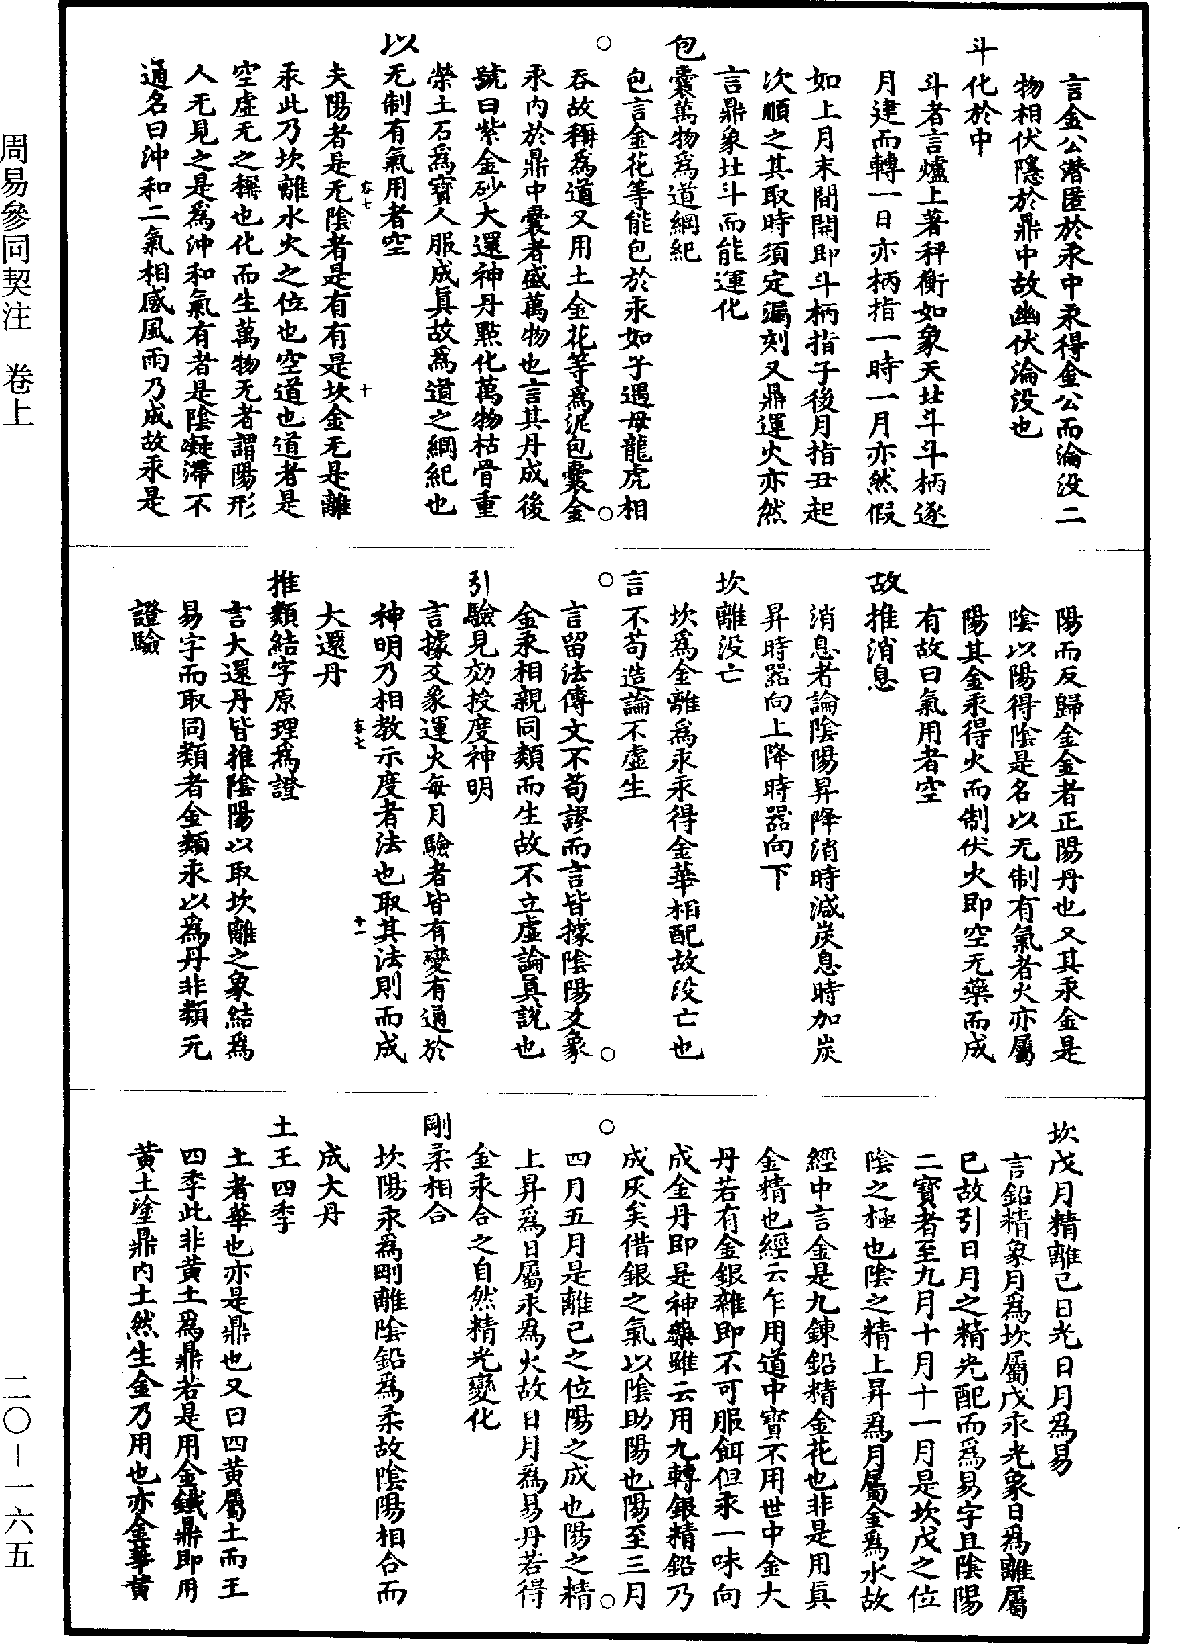 言金公潛匿於汞中汞得金公而淪没二
物相伏隱於鼎中故幽伏淪没也
斗化於中
斗者言爐上著秤衡如象天北斗斗柄逐
月建而轉一日亦柄指一時一月亦然假
如上月末間開即斗柄指子後月指丑起
次順之其取時須定漏刻又鼎運火亦然
言鼎象北斗而能運化
包囊萬物爲道綱紀
包言金花等能包於汞如子遇母龍虎相
吞故稱爲道又用土金花等爲泥包囊金
汞內於鼎中囊者盛萬物也言其丹成後
號曰紫金砂大還神丹點化萬物枯骨重
榮土石爲寶人服成眞故爲道之綱紀也
以无制有氣用者空
夫陽者是无陰者是有有是坎金无是離
汞此乃坎離水火之位也空道也道者是
空虛无之稱也化而生萬物无者謂陽形
人无見之是爲沖和氣有者是陰凝滯不
通名曰沖和二氣相感風雨乃成故汞是
容七
十
陽而反歸金金者正陽丹也又其汞金是
陰以陽得陰是名以无制有氣者火亦屬
陽其金汞得火而制伏火即空无藥而成
有故曰氣用者空
故推消息
消息者論陰陽昇降消時減炭息時加炭
昇時器向上降時器向下
坎離没亡
坎爲金離爲汞汞得金華相配故没亡也
言不苟造論不虛生
言留法傳文不苟謬而言皆據陰陽爻象
金汞相親同類而生故不立虛論眞説也
引驗見効校度神明
言據爻象運火每月驗者皆有變有通於
神明乃相教示度者法也取其法則而成
大還丹
容七
十一
推類結字原理爲證
言大還丹皆推陰陽以取坎離之象結爲
易字而取同類者金類汞以爲丹非類无
證驗
坎戊月精離己日光日月爲易
言鉛精象月爲坎屬戊汞光象日爲離屬
己故引日月之精光配而爲易字且陰陽
二寶者至九月十月十一月是坎戊之位
陰之極也陰之精上昇爲月屬金爲水故
經中言金是九鍊鉛精金花也非是用眞
金精也經云乍用道中寶不用世中金大
丹若有金銀雜即不可服餌但汞一味向
成金丹即是神藥雖云用九轉銀精鉛乃
成灰矣借銀之氣以陰助陽也陽至三月
四月五月是離己之位陽之成也陽之精
上昇爲日屬汞爲火故日月爲易丹若得
金汞合之自然精光變化
剛柔相合
坎陽汞爲剛離陰鉛爲柔故陰陽相合而
成大丹
土王四季
土者華也亦是鼎也又曰四黄屬土而王
四季此非黄土爲鼎若是用金鐵鼎即用
黄土塗鼎內土然生金乃用也亦金華黄
周易參同契注　卷上
二〇—一六五